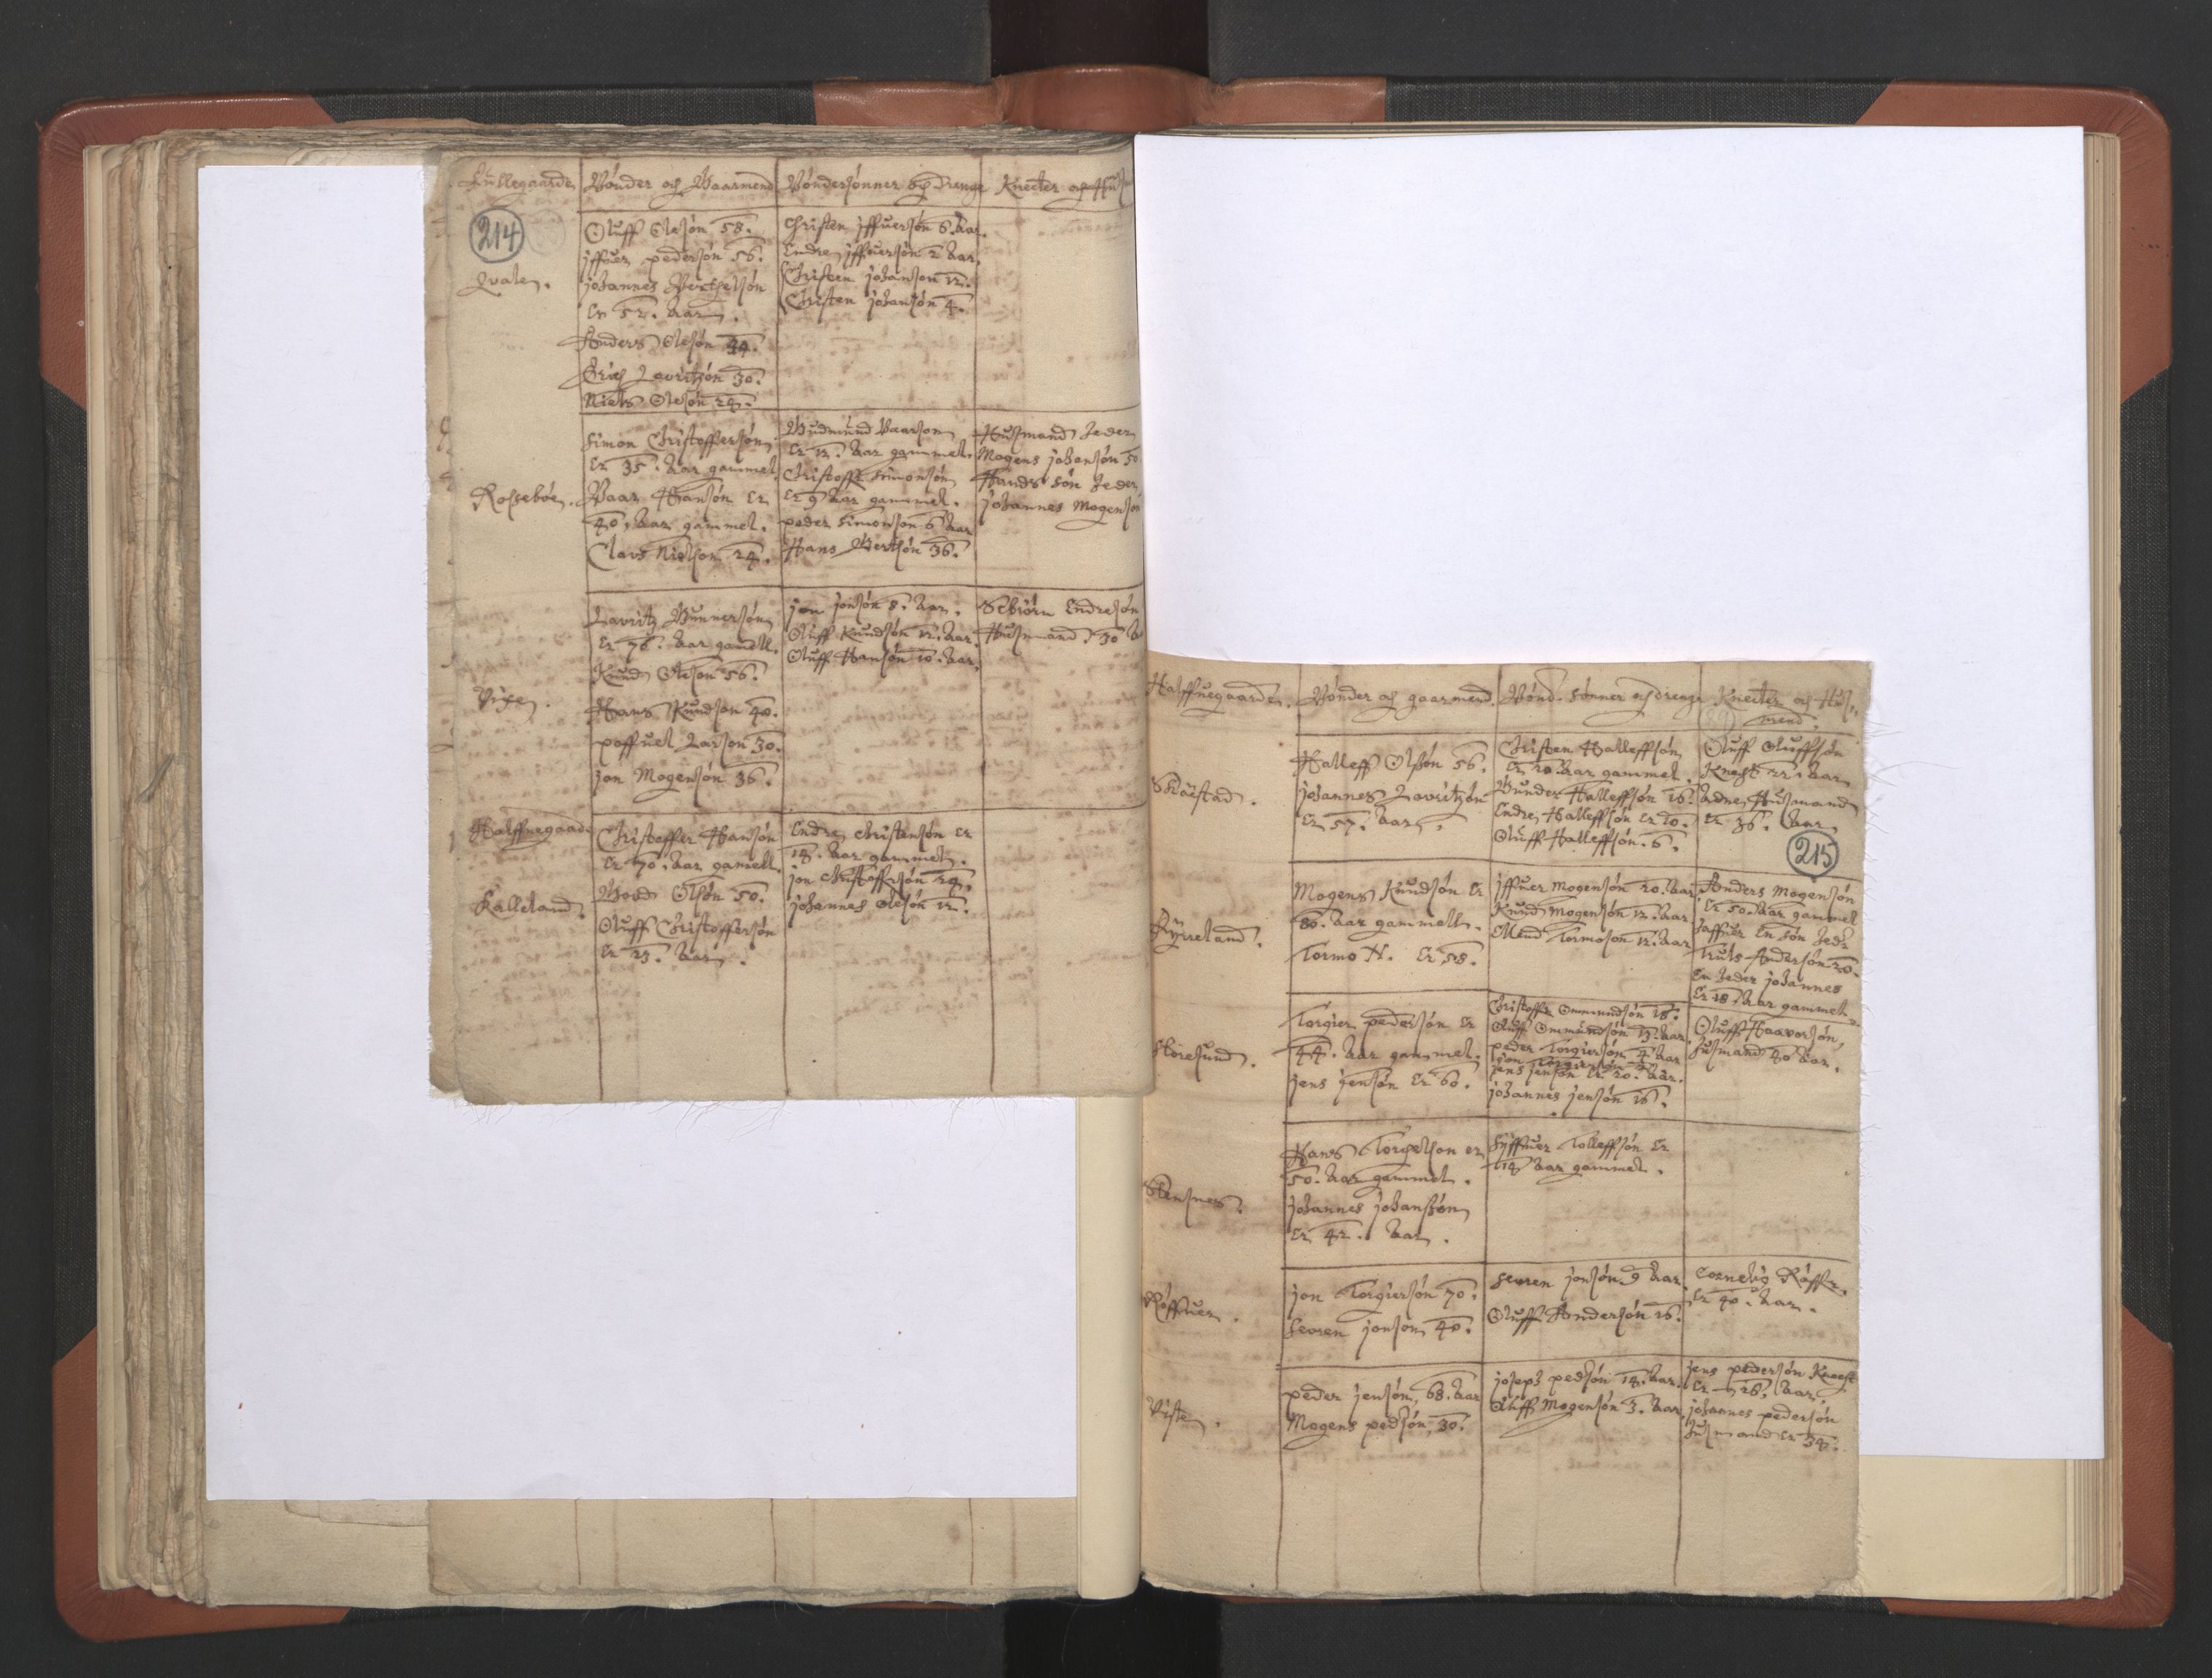 Fullegaarde Bønder och Gaarmend Bøndersønner og Drenge Knecter och Huß
214
Qvalen.
Oluff Olesøn 58.
jffuer pedersøn 56.
johannes Berthelsøn
Er 52. Aar.
Anders Olesøn 44.
Erich Lauritzøn 30.
Niels Olesøn 24.
Christen jffuersøn 6. Aar.
Endre jffuersøn 2 Aar.
Christen johanson 12.
Christen johansøn 4.
Rossebøe.
Simon Christoffersøn
Er 35. Aar gammel
Baar Hansøn Er
40. Aar gammel.
Clavs Nielson 24.
Gudmund Baarson
Er 12. Aar gammel.
Christoffr Simonsøn
Er 9 Aar gammel.
peder Simonson 6 Aar
Hans Bertsøn 36.
Husmand heder
Mogens johansøn 50
Hands søn heder
johannes Mogensøn
Vige.
Lavritz Gunnersøn
Er 76. Aar gamell.
Knud Olson 56.
Hans Knudson 40.
poffuel Larson 30.
jon Mogensøn 36.
jon jonsøn 8. Aar.
Oluff Knudsøn 12. Aar.
Oluff Hansøn 10. Aar.
Sebiørn Endresøn
Husmand. 30 A
Halffuegaarde
Kalleland.
Christoffer Hansøn
Er 70. Aar gamell.
Olsøn 50.
Oluff Christoffersøn
Er 23. Aar.
Endre Christensøn Er
14. Aar gammel.
jon Christoffersøn 24.
johannes Olesøn 12.
Halffuegaarde. Bønder och gaarmend. Bønd. sønner och drenge Knecter och Huß
mend.
Skaastad.
Halleff Olsøn 56.
johannes Lavritzøn
Er 57. Aar.
Christen Halleffsøn
Er 20. Aar gammel.
Gunder Halleffsøn 16.
Endre Halleffsøn Er 10.
Oluff Halleffsøn. 6.
Oluff Oluffsøn
Knegt 22. Aar
Adne Husmand
Er 36. Aar
215
Kyrreland.
Mogens Knudsøn Er
80. Aar gammell.
Tormo N. Er 58.
jffuer Mogensøn 20. Aar
Knud Mogensøn 12. Aar
Elend Tormoson 12. Aar
Anders Mogensøn
Er 50. Aar gammel
haffuer En søn hedr
Truls Andersøn 20.
En heder johannes
Er 18. Aar gammel.
Storesund.
Torgier pedersøn Er
44. Aar gammel.
jens jensøn Er 60.
Christoffr Ommundsøn 18.
Oluff Ommundsøn 13. Aar
peder Torgiersøn 4 Aar
jens jensøn Er 20. Aar.
johannes jensøn 16.
Oluff Haavorsøn,
husmand 40 Aar.
Stensnes.
Hans Torgelson er
50. Aar gammel.
johannes johansøn
Er 42. Aar.
Siffuer Tolleffsøn Er
14 Aar gammel.
Røffuer.
jon Torgiersøn 70.
Seoren jonson 40.
Seoren jonsøn 9 Aar.
Oluff Andersøn 16.
Cornelig Røffr.
Er 40. Aar.
Viste.
peder jensøn, 68. Aar
Mogens pedsøn, 30.
joseph pedsøn 14. Aar.
Oluff Mogensøn 3. Aar.
jens pedersøn Knegt
Er 26. Aar,
johannes pedersøn
husmand Er 34.